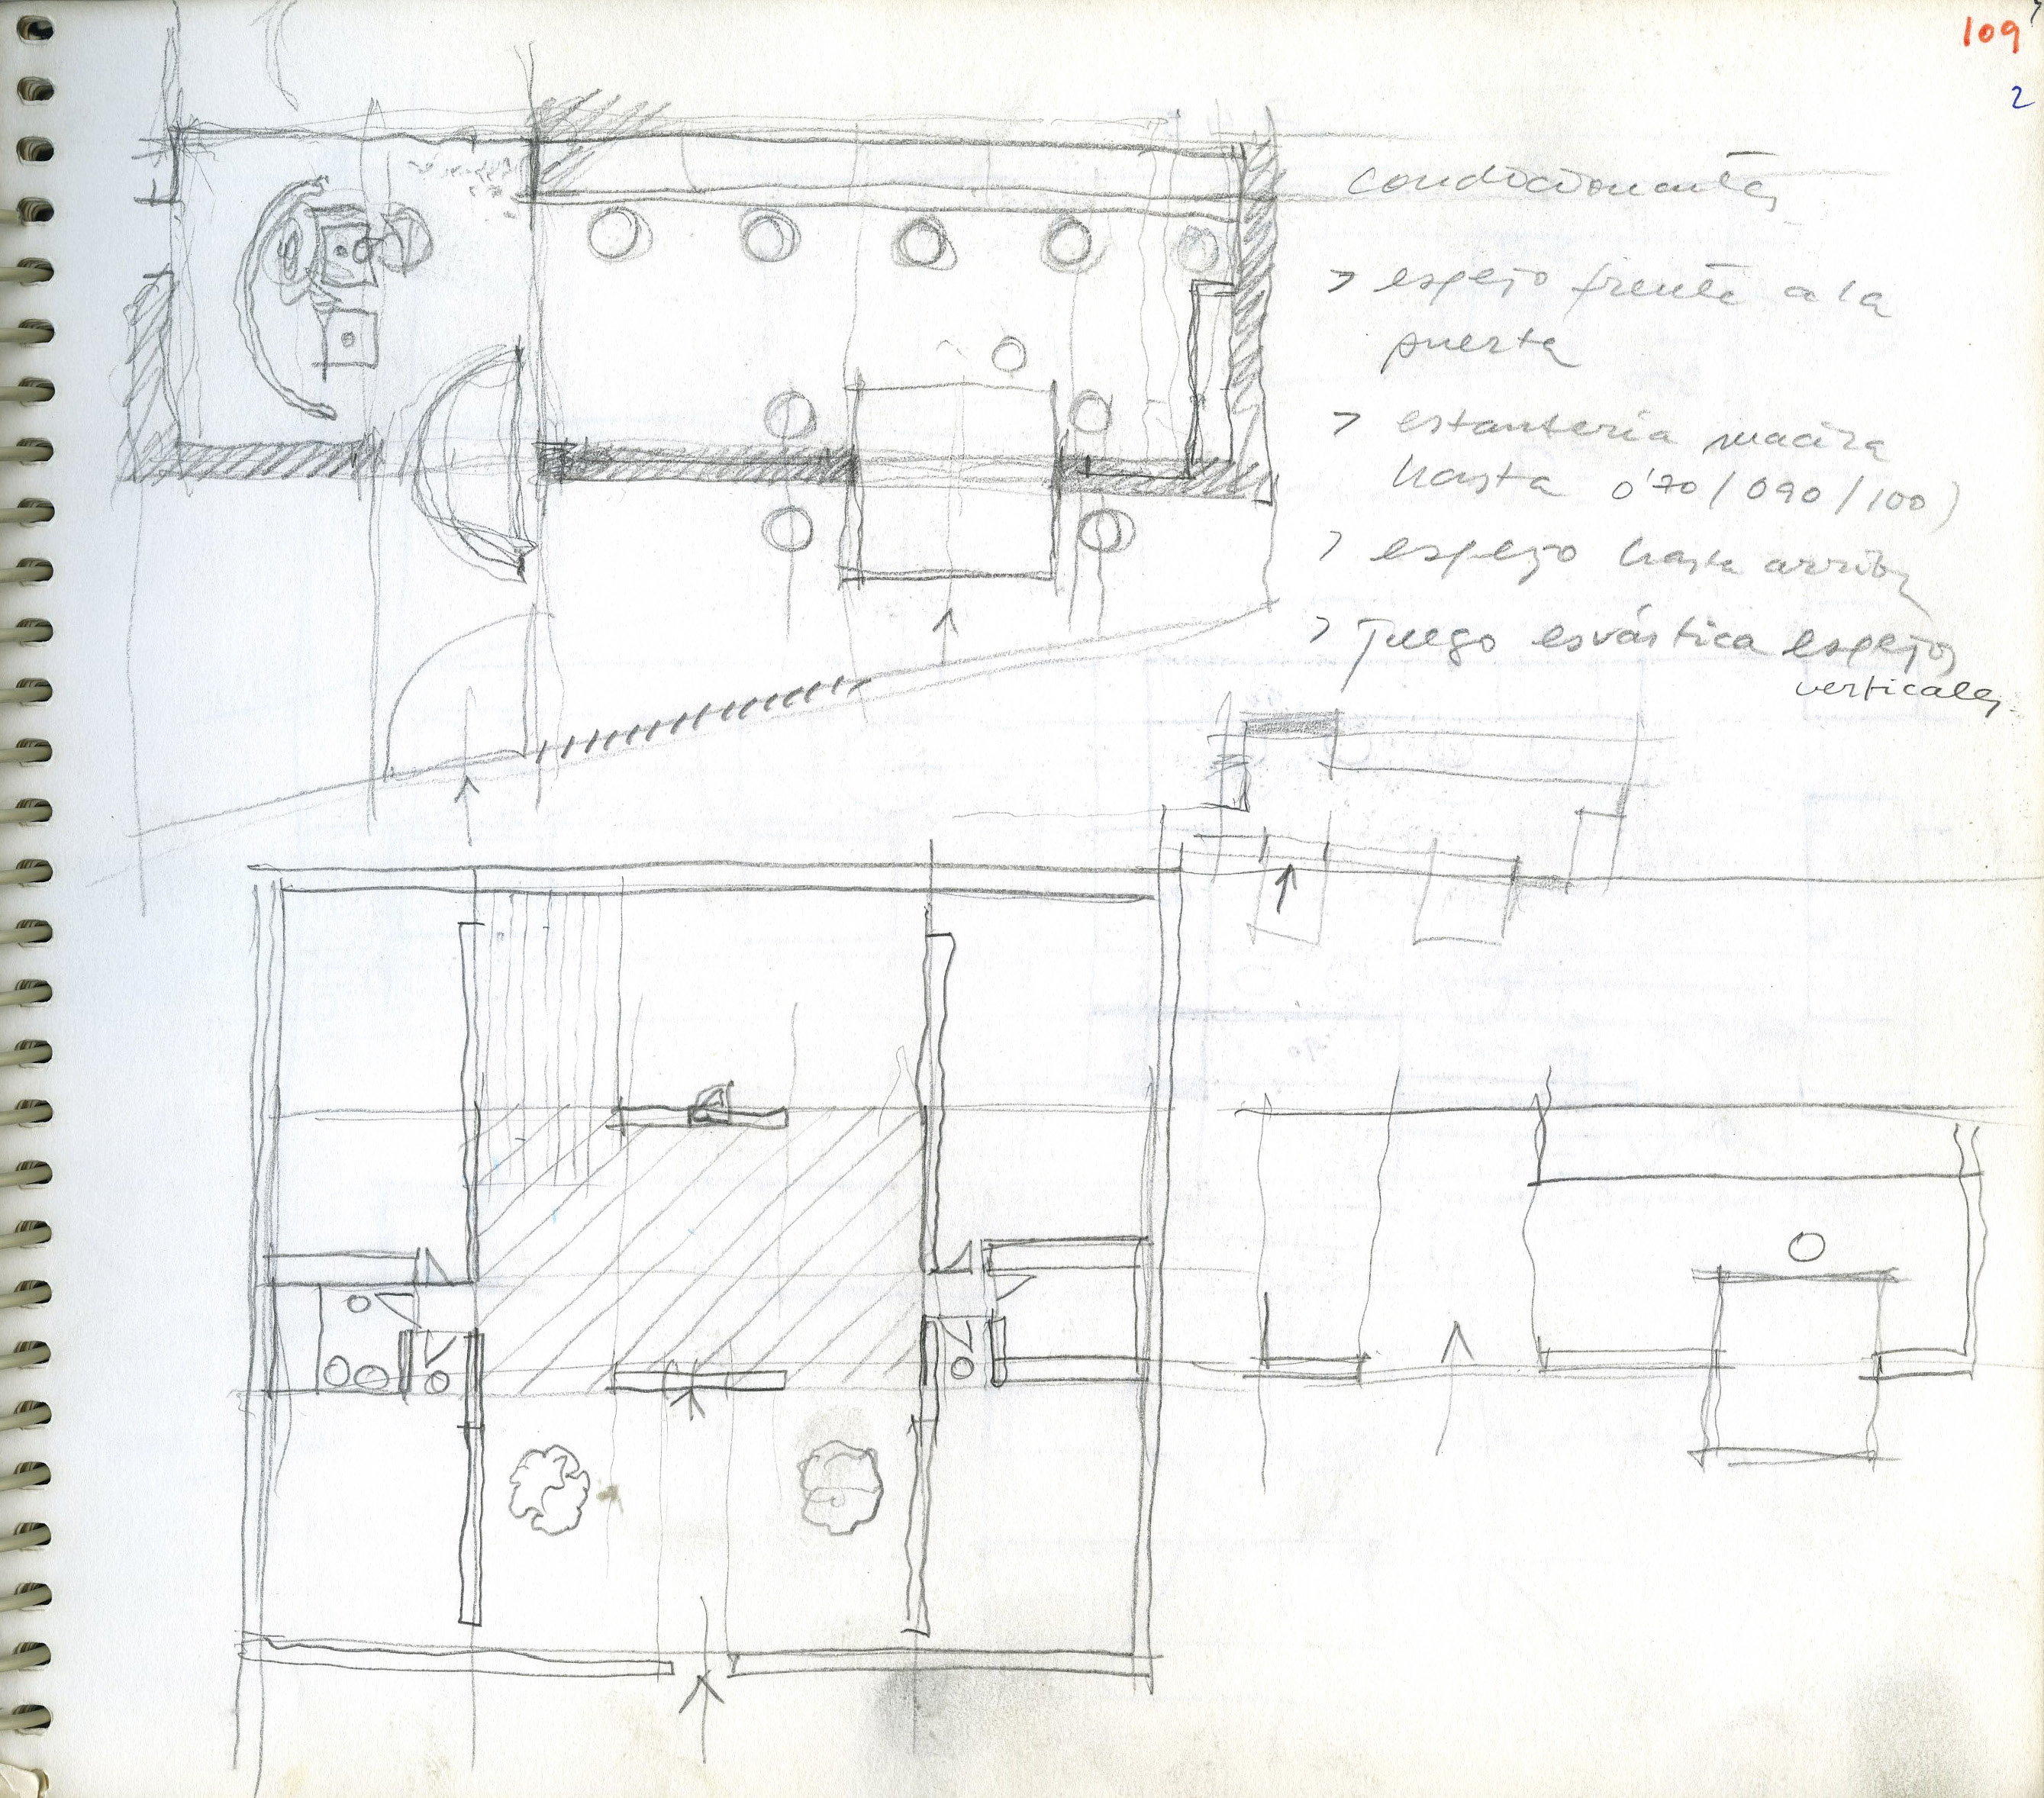 109
2
condicionantes
> espejo frente a la
puerta
> estantería maciza
hasta 0'70/090/100)
> espejo hasta arriba
> juego esvástica espejos
verticales